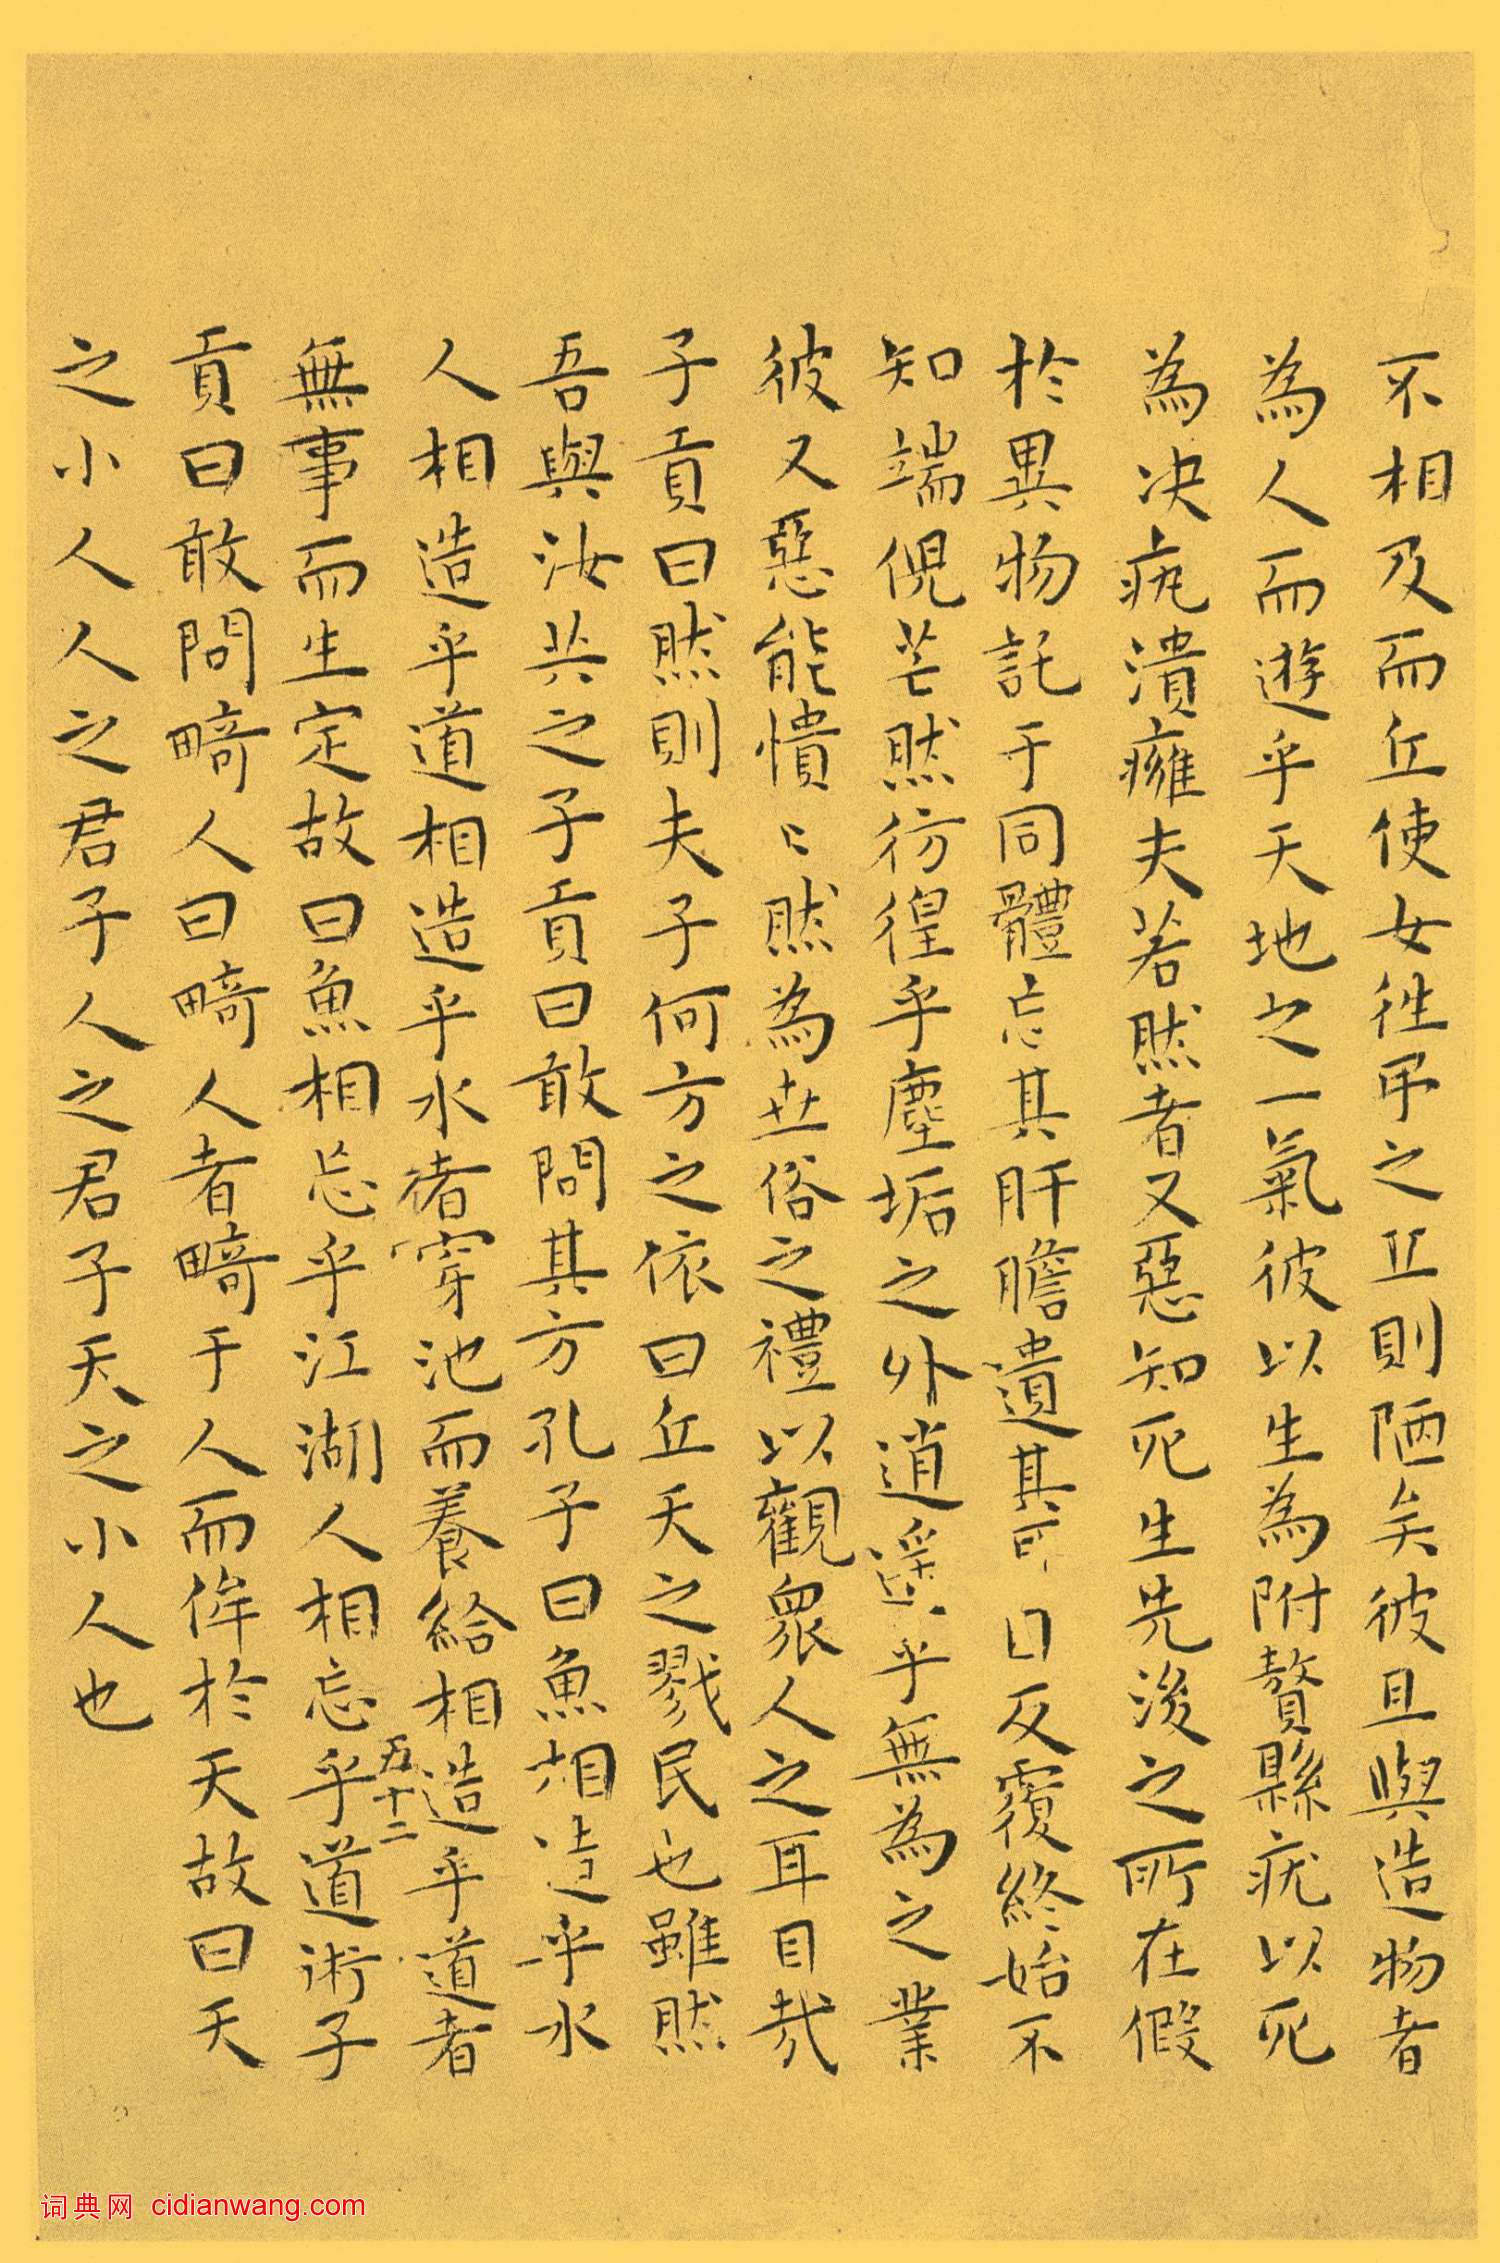 不相及而丘使女往弔之丘則陋矣彼且與造物者
為人而遊乎天地之一氣彼以生為附贅縣疣以死
為决𤴯潰癰夫若然者又惡知死生先後之所在假
於異物託于同體忘其肝膽遺其耳目反覆終始不
知端倪芒然彷徨乎塵垢之外逍遥乎無為之業
彼又惡能憒〻然為世俗之禮以觀衆人之耳目哉
子貢曰然則夫子何方之依曰丘天之戮民也雖然
吾與汝共之子貢曰敢問其方孔子曰魚相造乎水
人相造乎道相造乎水者穿池而養給相造乎道者
無事而生定故曰魚相忘乎江湖人相忘乎道術子
五十二
貢曰敢問畸人曰畸人者畸于人而侔於天故曰天
之小人人之君子人之君子天之小人也
词典网 cidianwang.com